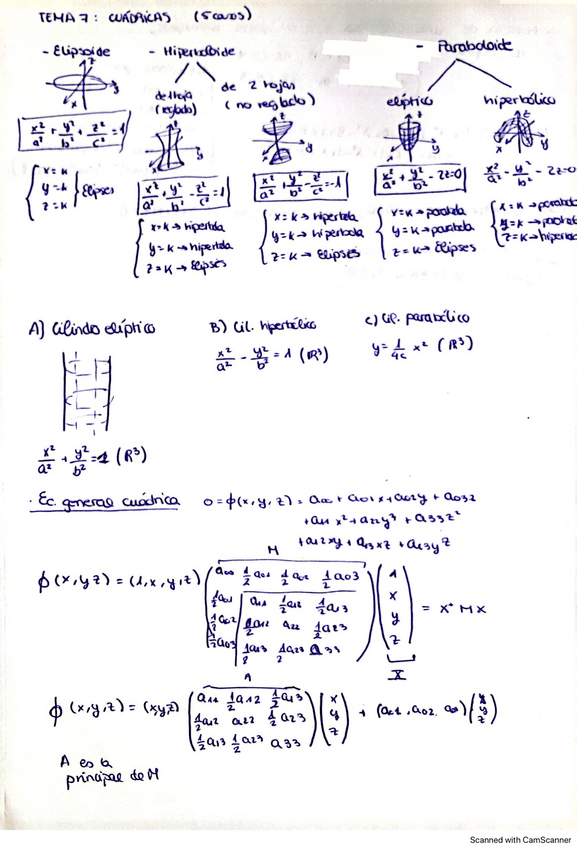 TEMA 7: CUÁDRICAS (5 casos)
- Elipsoide
x²/a² + y²/b² + z²/c² = 1
{ x=k
y=k
z=k } Elipses
- Hiperboloide
de 1 hoja
(reglado)
x²/a² + y²/b² - z²/c² = 1
{ x=k → hipérbola
y=k → hipérbola
z=k → Elipses
de 2 hojas
(no reglado)
x²/a² + y²/b² - z²/c² = -1
{ x=k → hipérbola
y=k → hipérbola
z=k → Elipses
- Paraboloide
elíptico
x²/a² + y²/b² - 2z=0
{ x=k → parábola
y=k → parábola
z=k → Elipses
hiperbólico
x²/a² - y²/b² - 2z=0
{ x=k → parábola
y=k → parábola
z=k → hipérbola
A) Cilindro elíptico
x²/a² + y²/b² = 1 (R³)
B) Cil. hiperbólico
x²/a² - y²/b² = 1 (R³)
C) Cil. parabólico
y = 1/4c x² (R³)
· Ec. general cuádrica 0 = ϕ(x,y,z) = a00 + a01x + a02y + a03z
+ a11 x² + a22y² + a33z²
+ a12xy + a13xz + a23yz
M
ϕ(x,y,z) = (1,x,y,z) ( a00 ½a01 ½a02 ½a03 ) ( 1 )
½a01 a11 ½a12 ½a13 x
½a02 ½a12 a22 ½a23 y = Xᵗ M X
½a03 ½a13 ½a23 a33 z
X
A
ϕ(x,y,z) = (xyz) ( a11 ½a12 ½a13 ) ( x )
½a12 a22 ½a23 y + (a01, a02, a03) ( x y z )
½a13 ½a23 a33 z
A es la
principal de M
Scanned with CamScanner